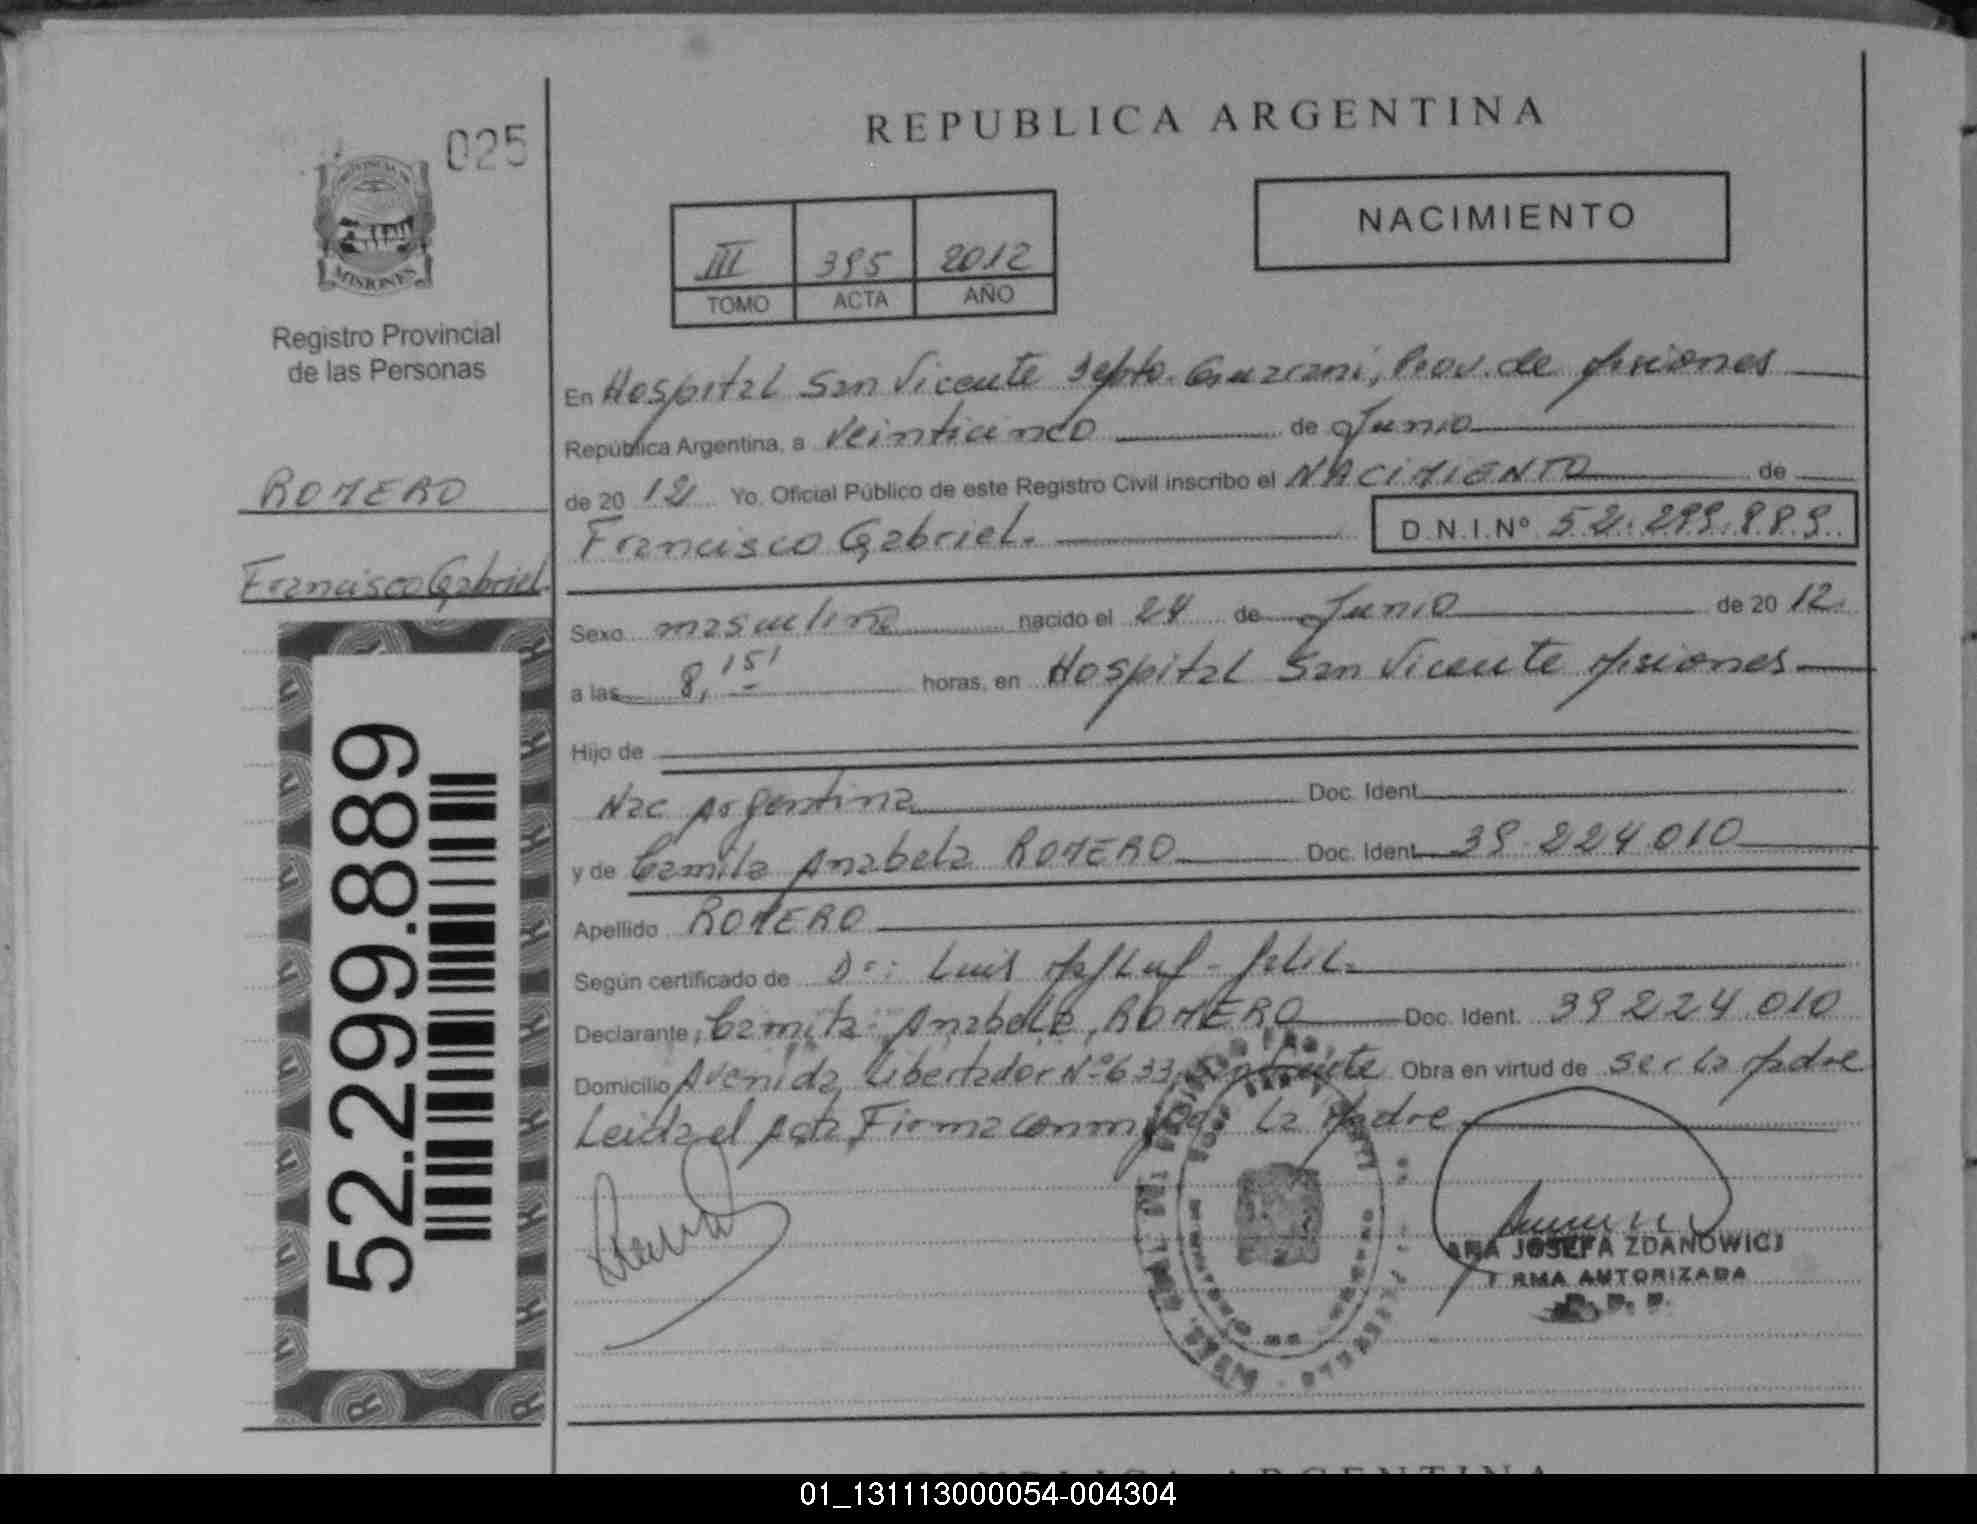 REPUBLICA ARGENTINA
025
NACIMIENTO
III 395 2012
TOMO ACTA AÑO
MISIONES
Registro Provincial
de las Personas
ROMERO
Francisco Gabriel
52.299.889
En Hospital San Vicente Depto. Guarani, Prov. de Misiones
República Argentina, a Veinticinco de Junio
de 20 12 Yo, Oficial Público de este Registro Civil inscribo el NACIMIENTO de
Francisco Gabriel. D.N.I.Nº 52.299.889.
Sexo masculino nacido el 24 de Junio de 20 12.
a las 8,15' horas, en Hospital San Vicente Misiones
Hijo de
Nac Argentina Doc. Ident.
y de Camila Anabela ROMERO Doc. Ident. 39.224.010
Apellido ROMERO
Según certificado de Dr: Luis
Declarante, Camila Anabela ROMERO Doc. Ident. 39224.010
Domicilio Avenida Libertador Nº 633, San Vicente Obra en virtud de ser la Madre
Leida el Acta, Firma conmigo la Madre
JOSEFA ZDANOWICZ
FIRMA AUTORIZADA
R. P. P.
REPUBLICA ARGENTINA
01_131113000054-004304